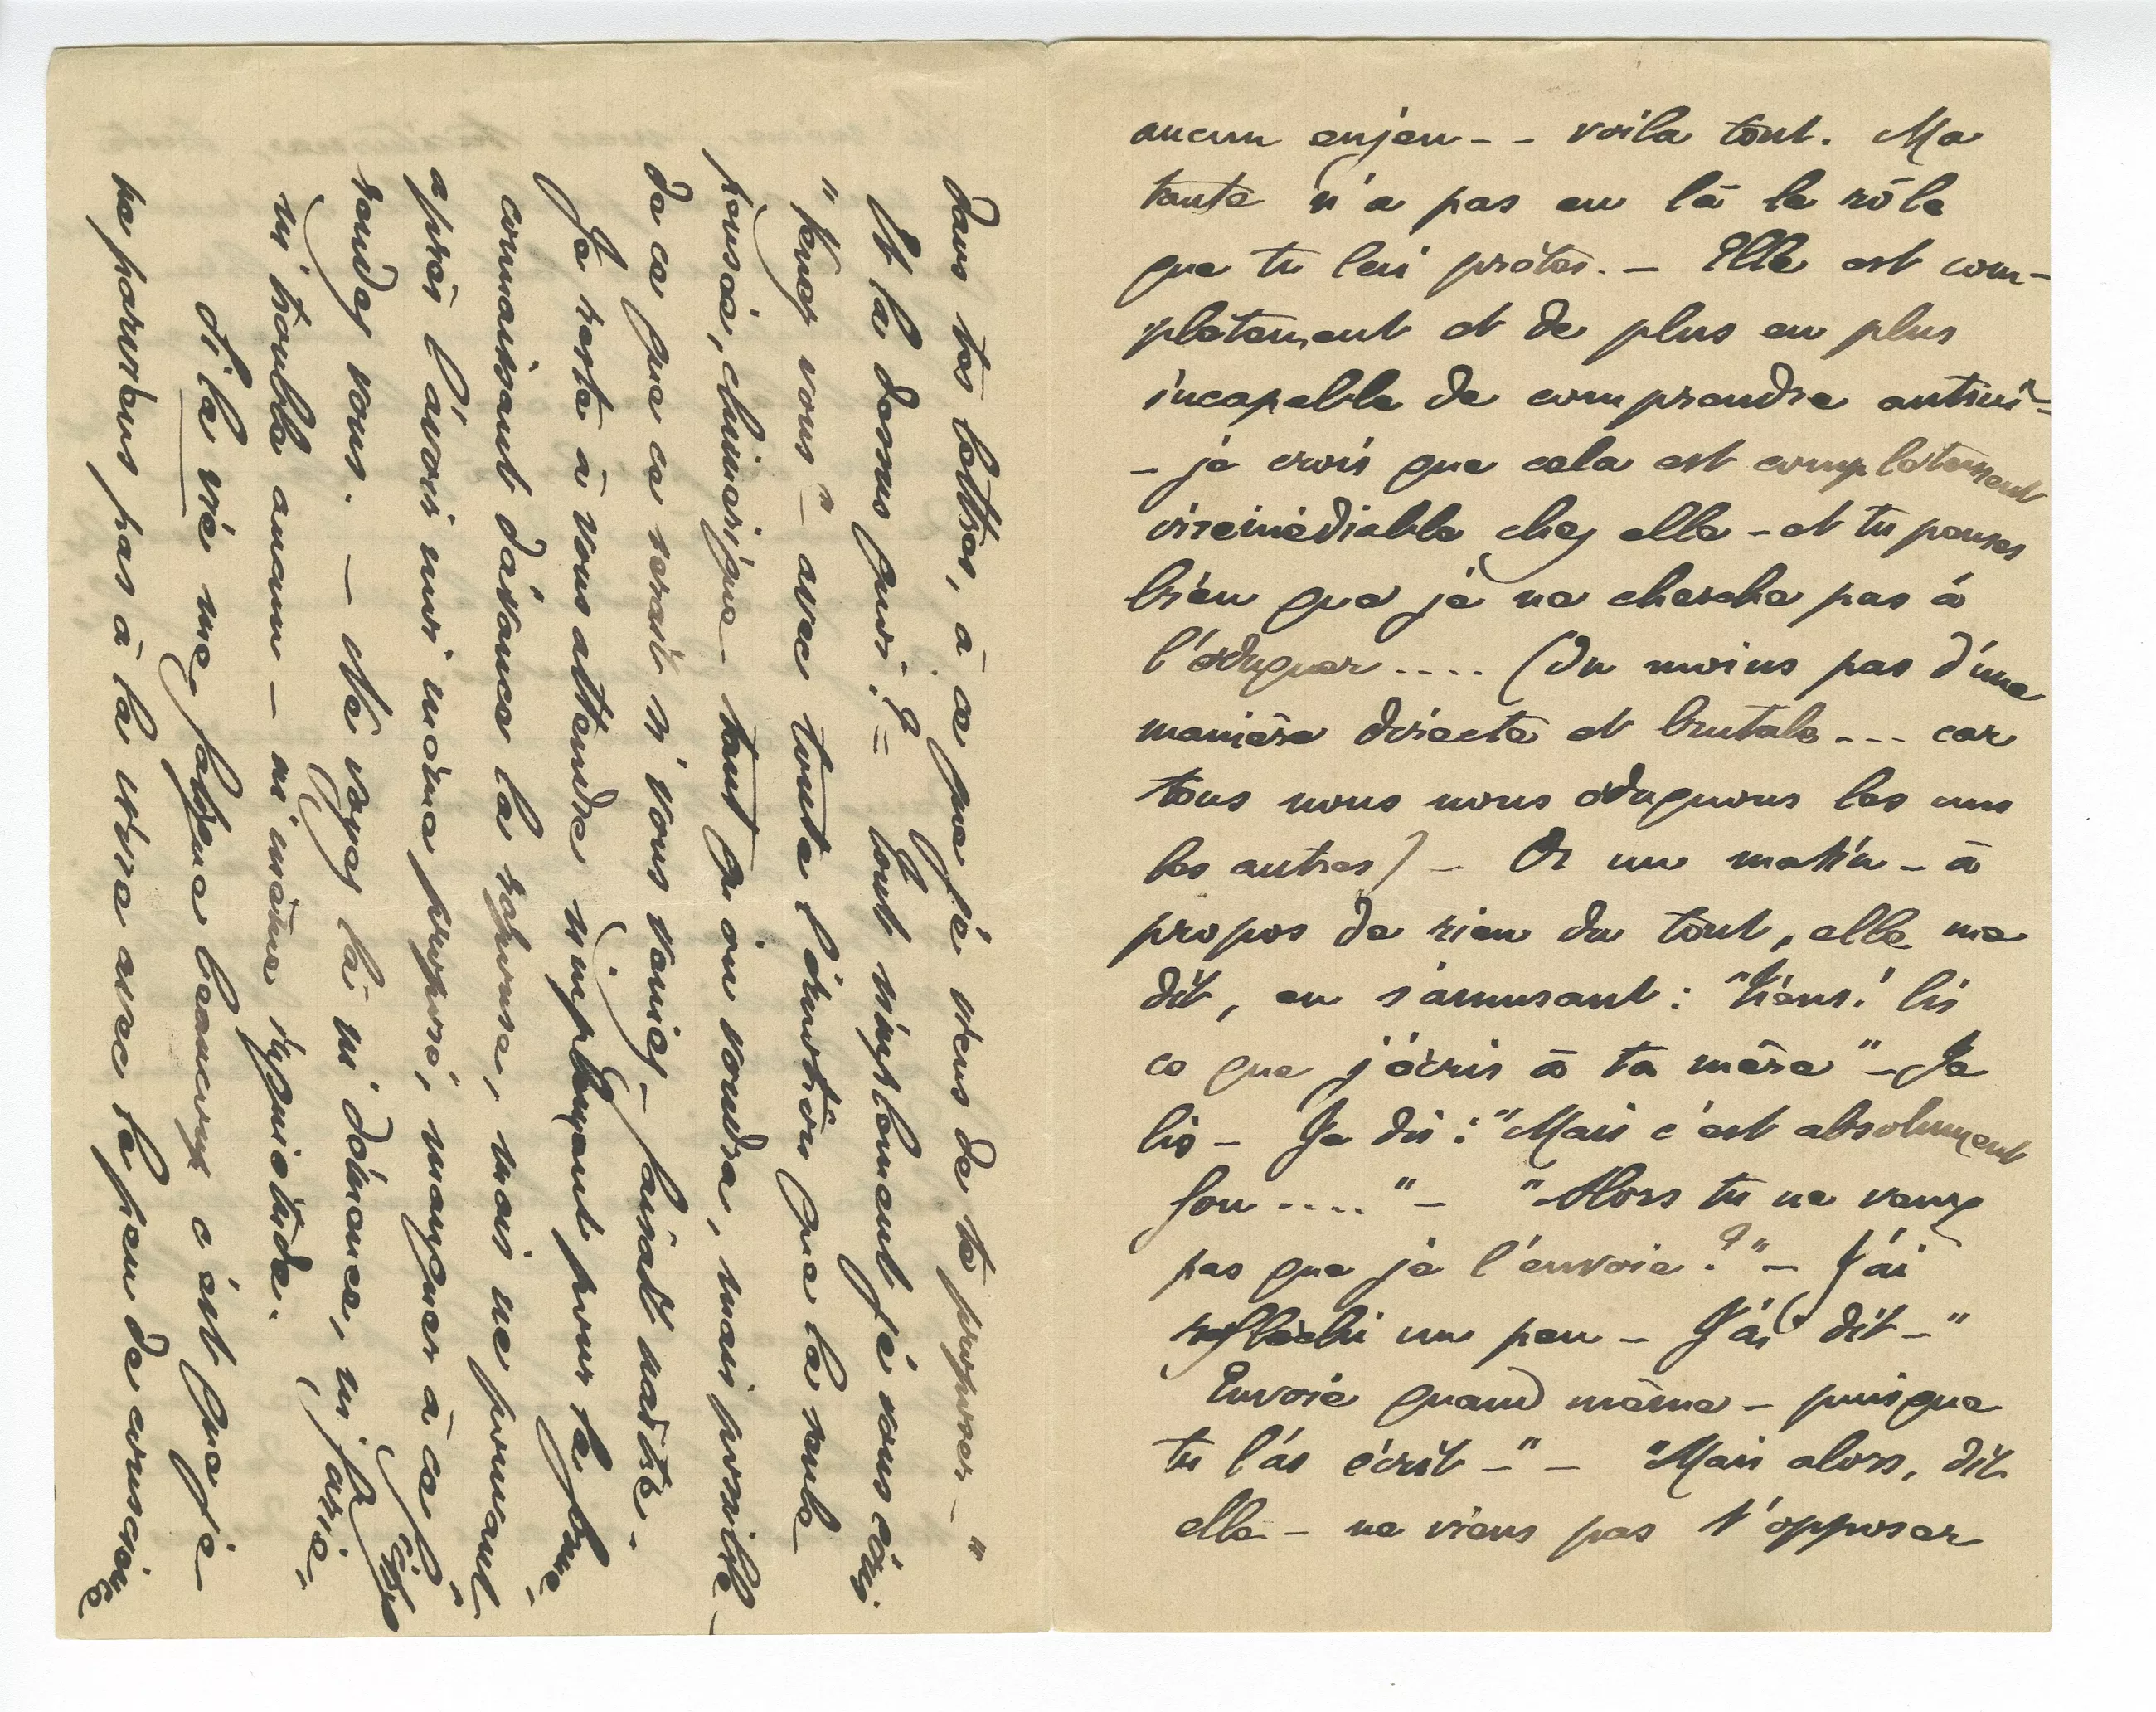 aucun enjeu - - voila tout. Ma
tante n'a pas eu là le rôle
que tu lui prêtes. - Elle est com-
plètement et de plus en plus
incapable de comprendre autrui -
- je crois que cela est complètement
irremédiable chez elle - et tu penses
bien que je ne cherche pas à
l'éduquer .... (Du moins pas d'une
manière directe et brutale --- car
tous nous nous éduquons les uns
les autres) - Or un matin - à
propos de rien du tout, elle me
dit, en s'amusant : "Tiens! lis
ce que j'écris à ta mère" - Je
lis - Je dis : "Mais c'est absolument
fou ...." - "Alors tu ne veux
pas que je l'envoie ?" - J'ai
réfléchi un peu - J'ai dit - "
Envoie quand même - puisque
tu l'as écrit - " - "Mais alors, dit
elle - ne viens pas t'opposer
dans tes lettres, à ce que je viens de te proposer - "
Et là dessus quoi ? = tout simplement je vous écris
"Venez vous" - avec toute l'émotion que la seule
pensée, chimérique tant qu'on voudra, mais possible
de ce que ce serait si vous veniez - faisait naître.
Je reste à vous attendre simplement pour la forme,
connaissant d'avance la réponse, mais ne pouvant
après l'avoir moi même proposé, manquer à ce
rendez vous. - Ne voyez là ni démence, ni folie,
ni trouble aucun - ni même inquiétude.
Si la vie me fatigue beaucoup c'est que je
ne parviens pas à la vivre avec le peu de conscience